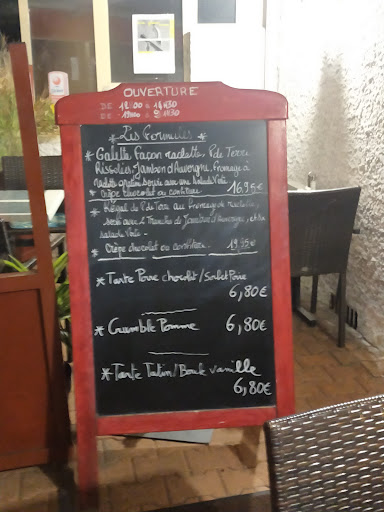 OUVERTURE
DE 12H00 à 14H30
DE 19H00 à 21H30
* Les Formules *
* Galette Façon raclette, P de Terre
Rissolées, Jambon d'Auvergne, Fromage à
raclette gratiné, servie avec une salade Verte
Crêpe chocolat ou confiture 16,95€
* Royal de P de Terre au fromage de raclette,
servi avec 2 Tranches de Jambon d'Auvergne, et sa
salade Verte -
- Crêpe chocolat ou confiture. 19,95€
* Tarte Poire chocolat/Sorbet Poire
6,80€
* Crumble Pomme 6,80€
* Tarte Tatin/Boule vanille
6,80€